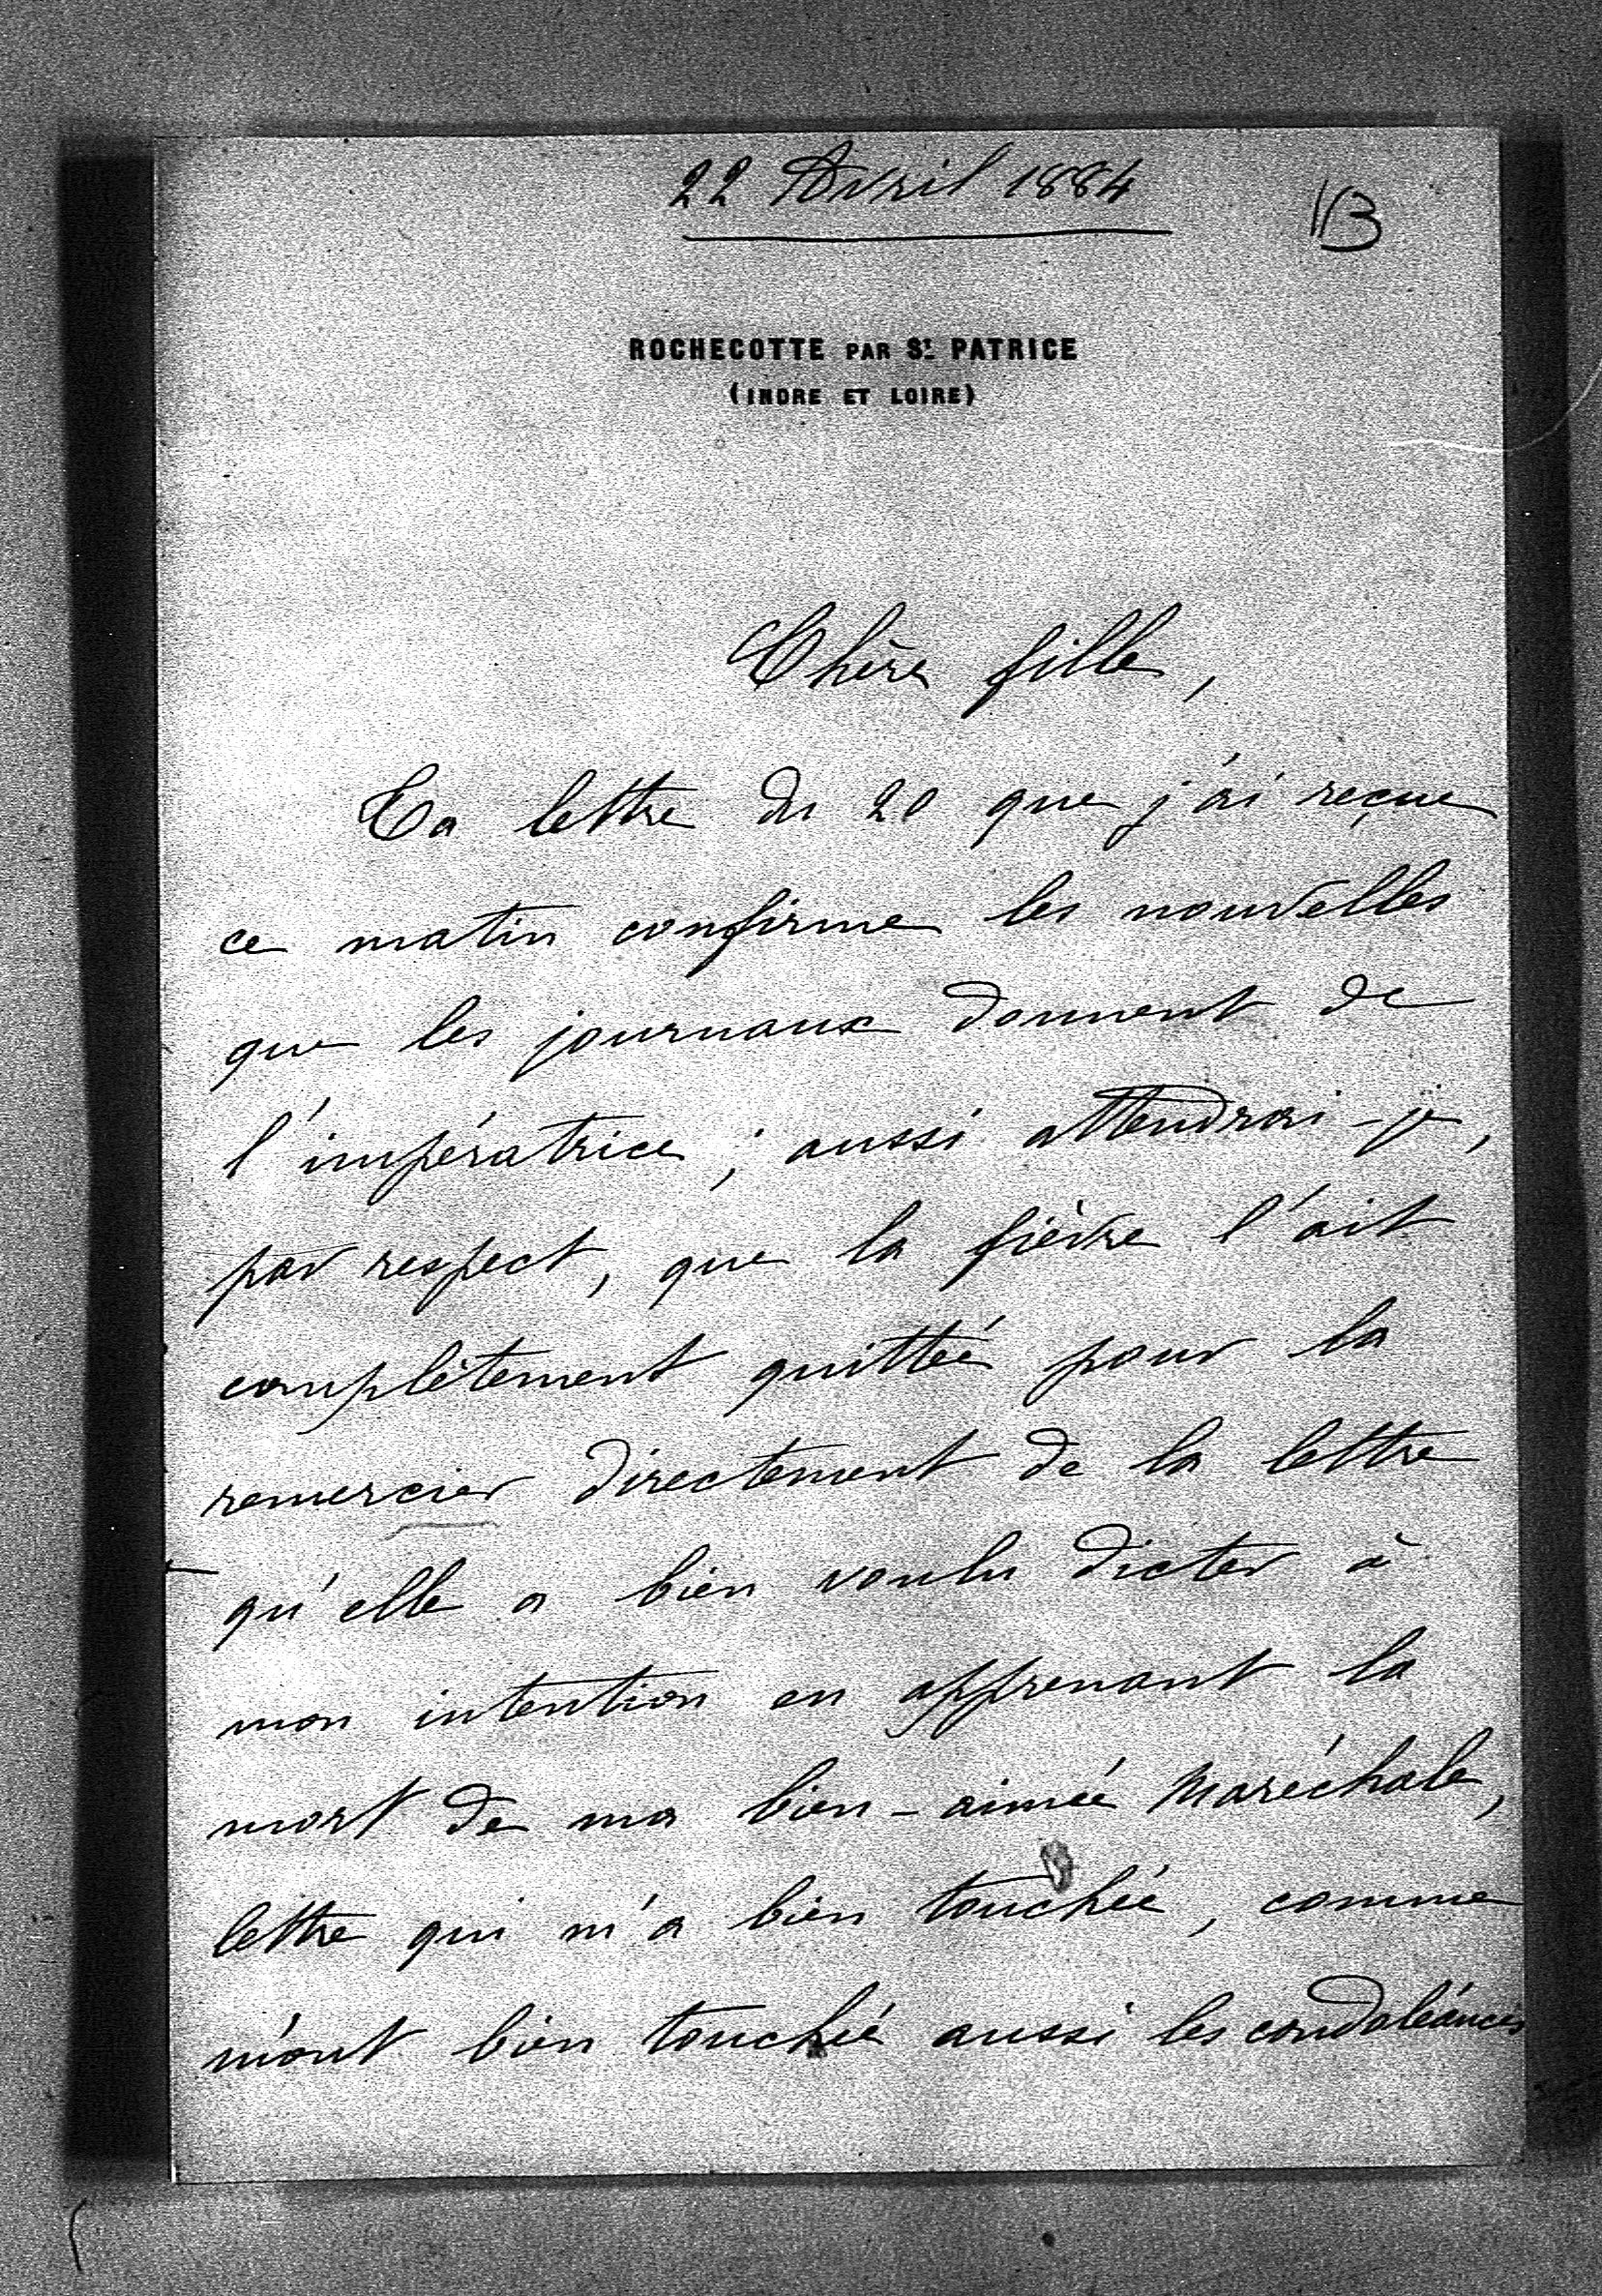 22 Avril 1884
ROCHECOTTE PAR St. PATRICE
(INDRE ET LOIRE)
Chère fille,
Ta lettre du 20 que j'ai reçue
ce matin confirme les nouvelles
que les journaux donnent de
l'impératrice ; aussi attendrai-je,
par respect, que la fièvre l'ait
complètement quittée pour la
remercier directement de la lettre
qu'elle a bien voulu dicter à
mon intention en apprenant la
mort de ma bien-aimée Maréchale,
lettre qui m'a bien touchée, comme
m'ont bien touchée aussi les condoléances